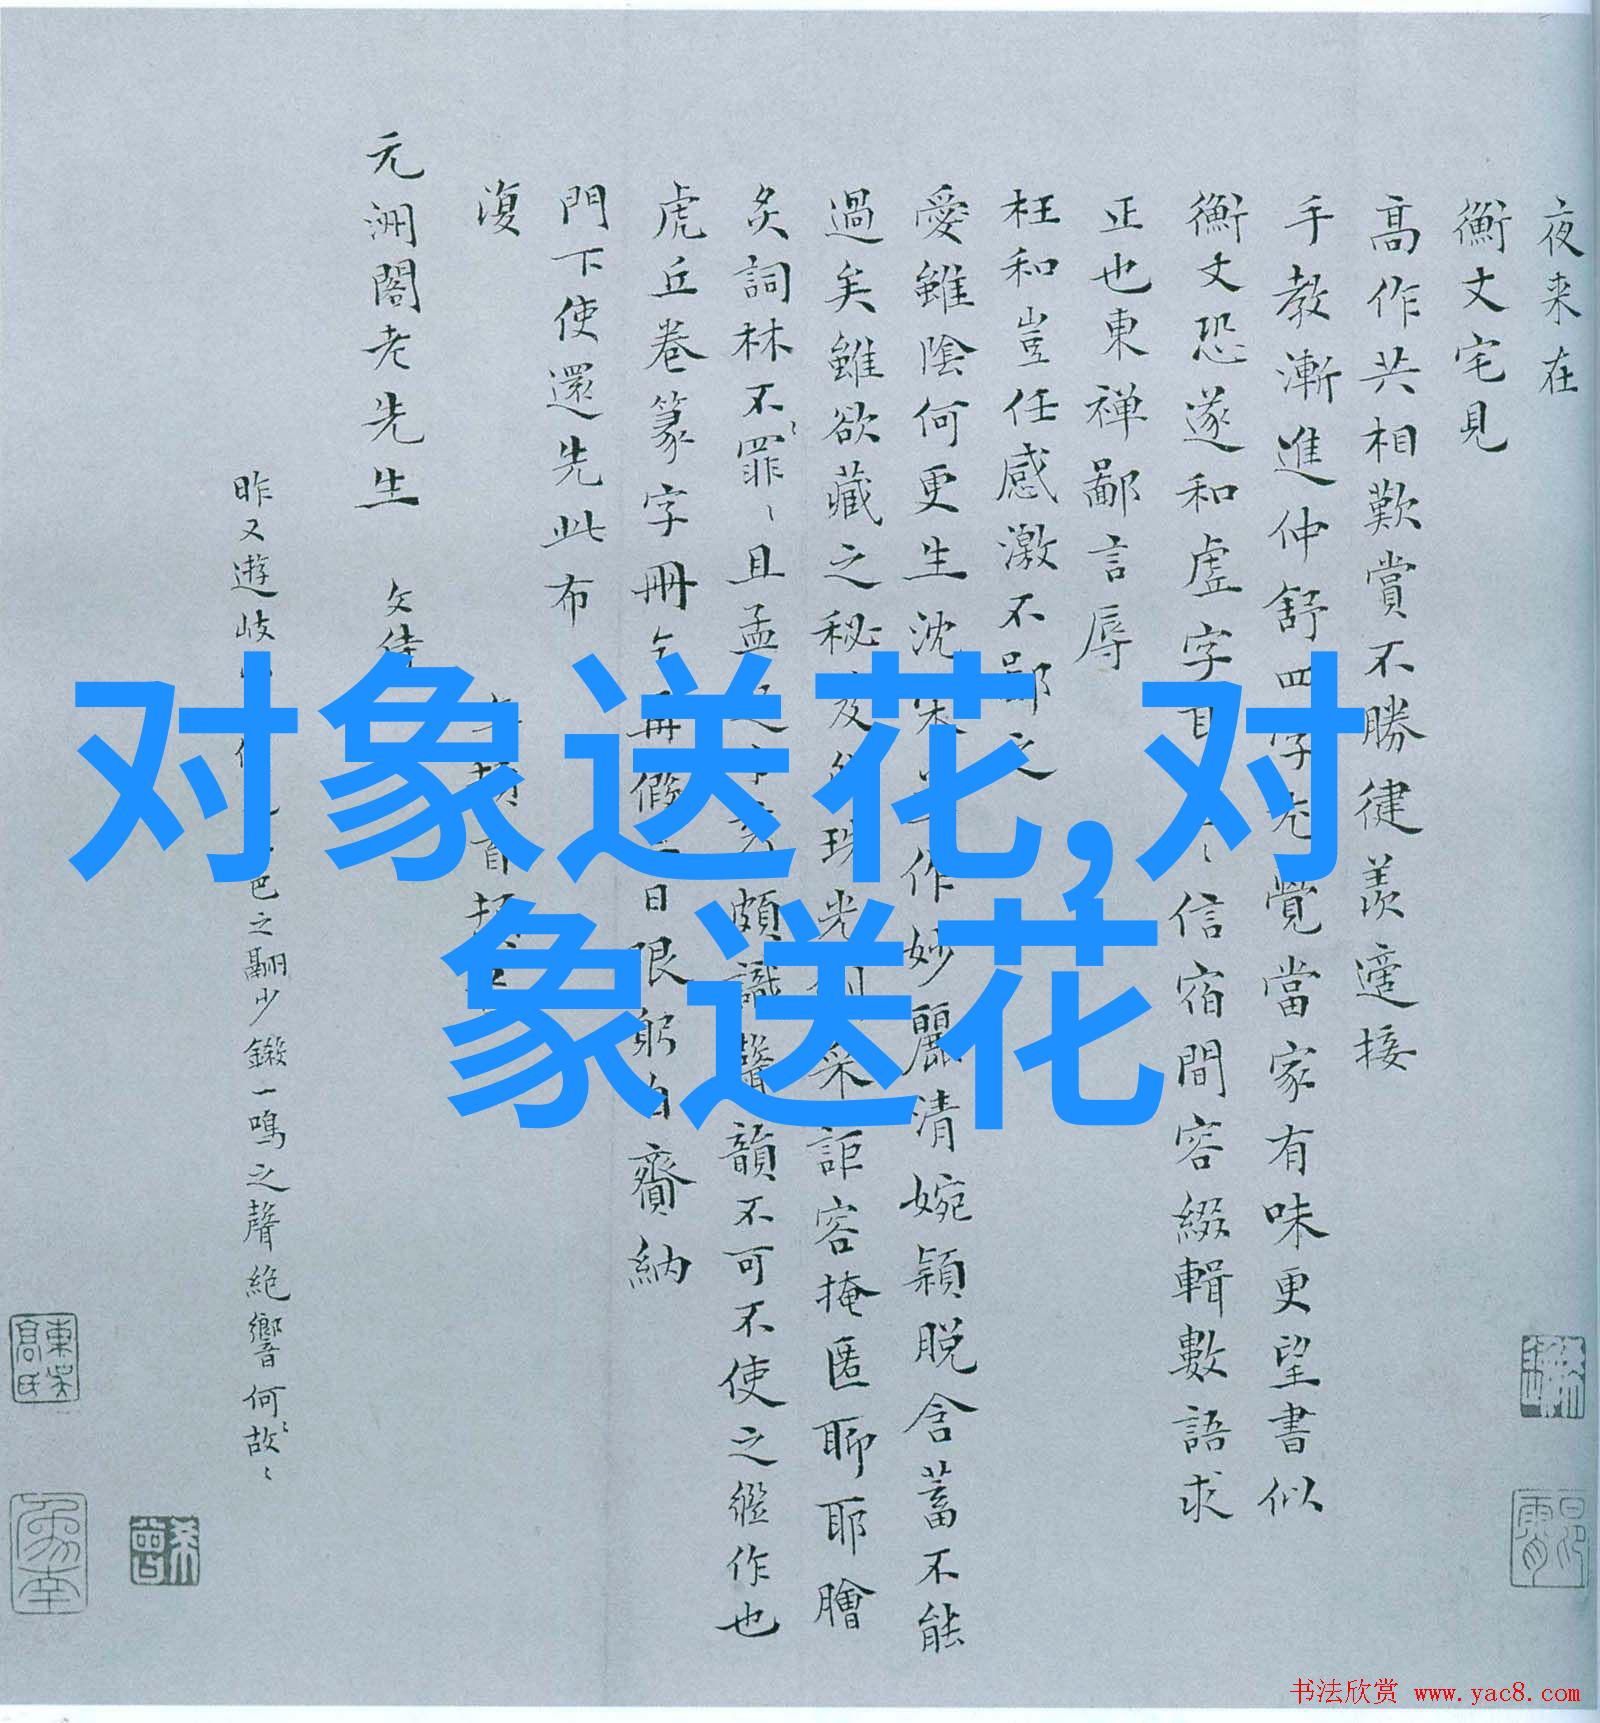 对象送花,对
象送花
夜来在
衡丈宅見
高作共相歎賞不勝健羨適接
手教漸進仲舒四字尤覺當家有味更望書似
衡丈恐遂和虛字信宿間容綴輯數語求
正也東禅鄙言辱
枉和豈任感激不鄙之
愛雖陰何更生沈宋作妙麗清婉穎脱含蓄不能
過矣雖欲藏之秘珠光采詎容掩匿耶耶膾
炙詞林不罪且孟頗識聲韻不可不使之繼作也
虎丘卷篆字冊假日限躬自齎納
門下使還先此布
復
元洲閣老先生
昨又遊岐之翩少鍛一鳴之聲絶響何故
東吳高氏
书法欣赏 www.yac8.com